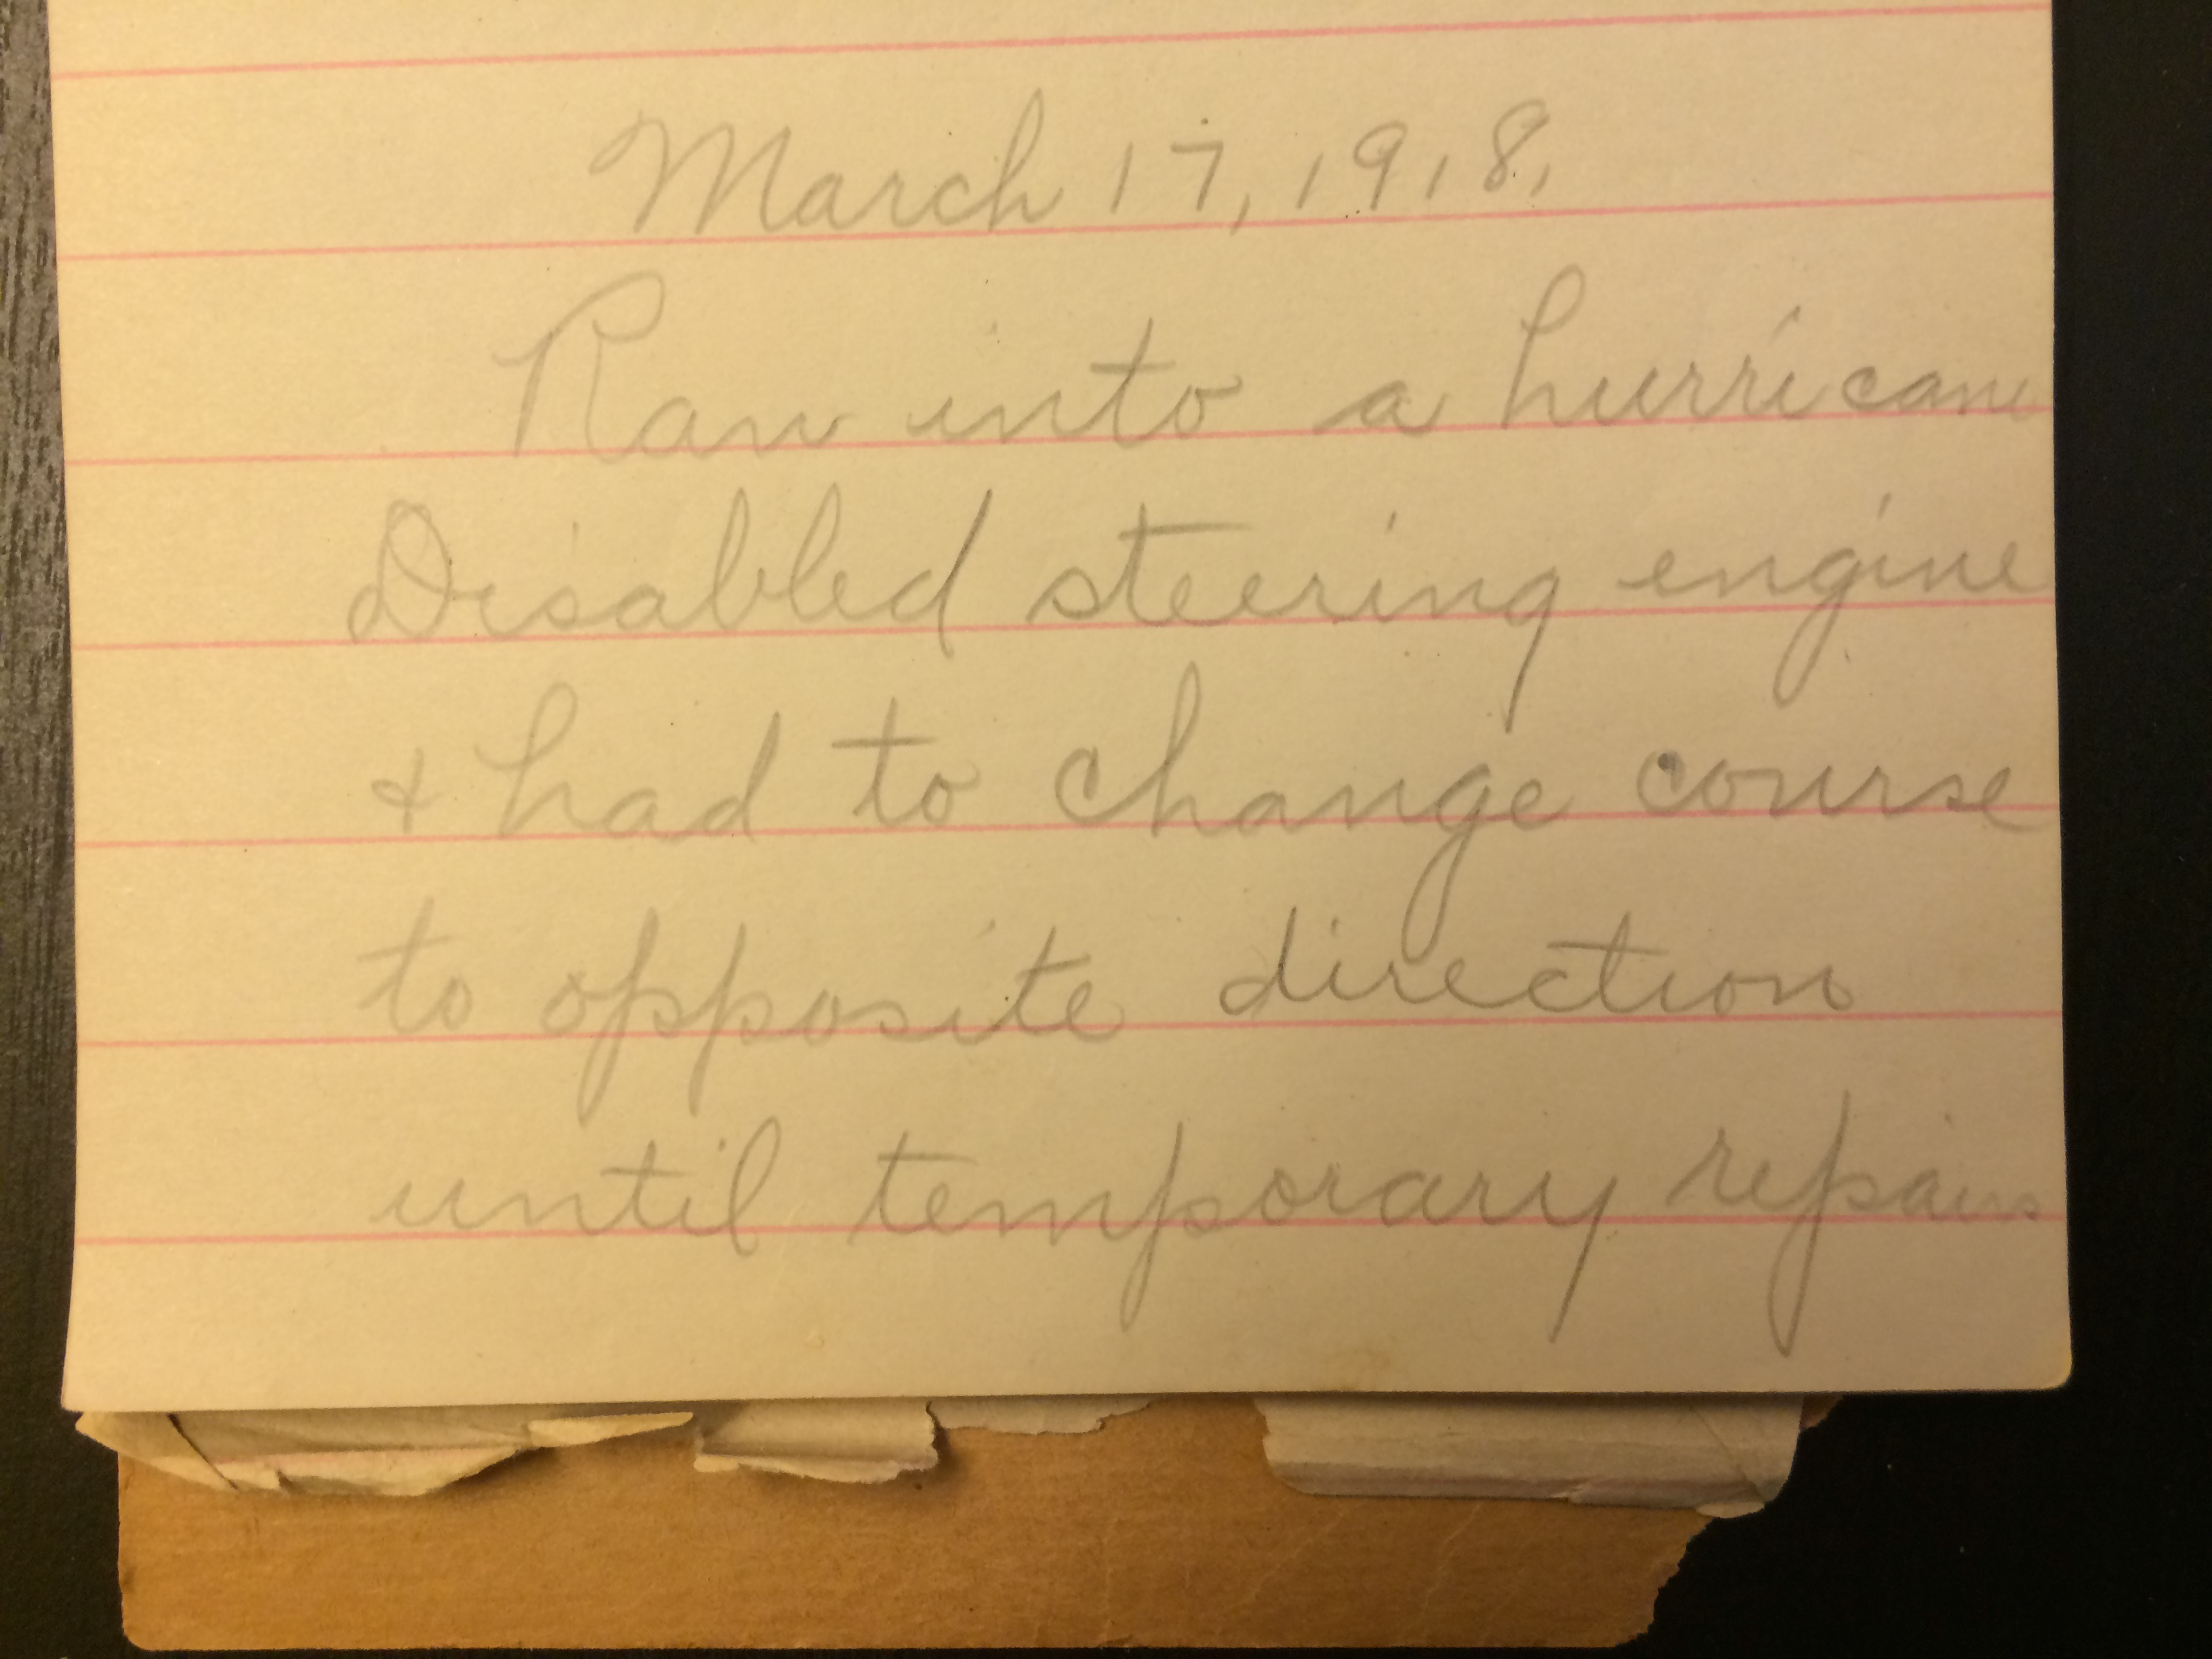 March 17, 1918,
Ran into a hurricane
Disabled steering engine
& had to change course
to opposite direction
until temporary repairs